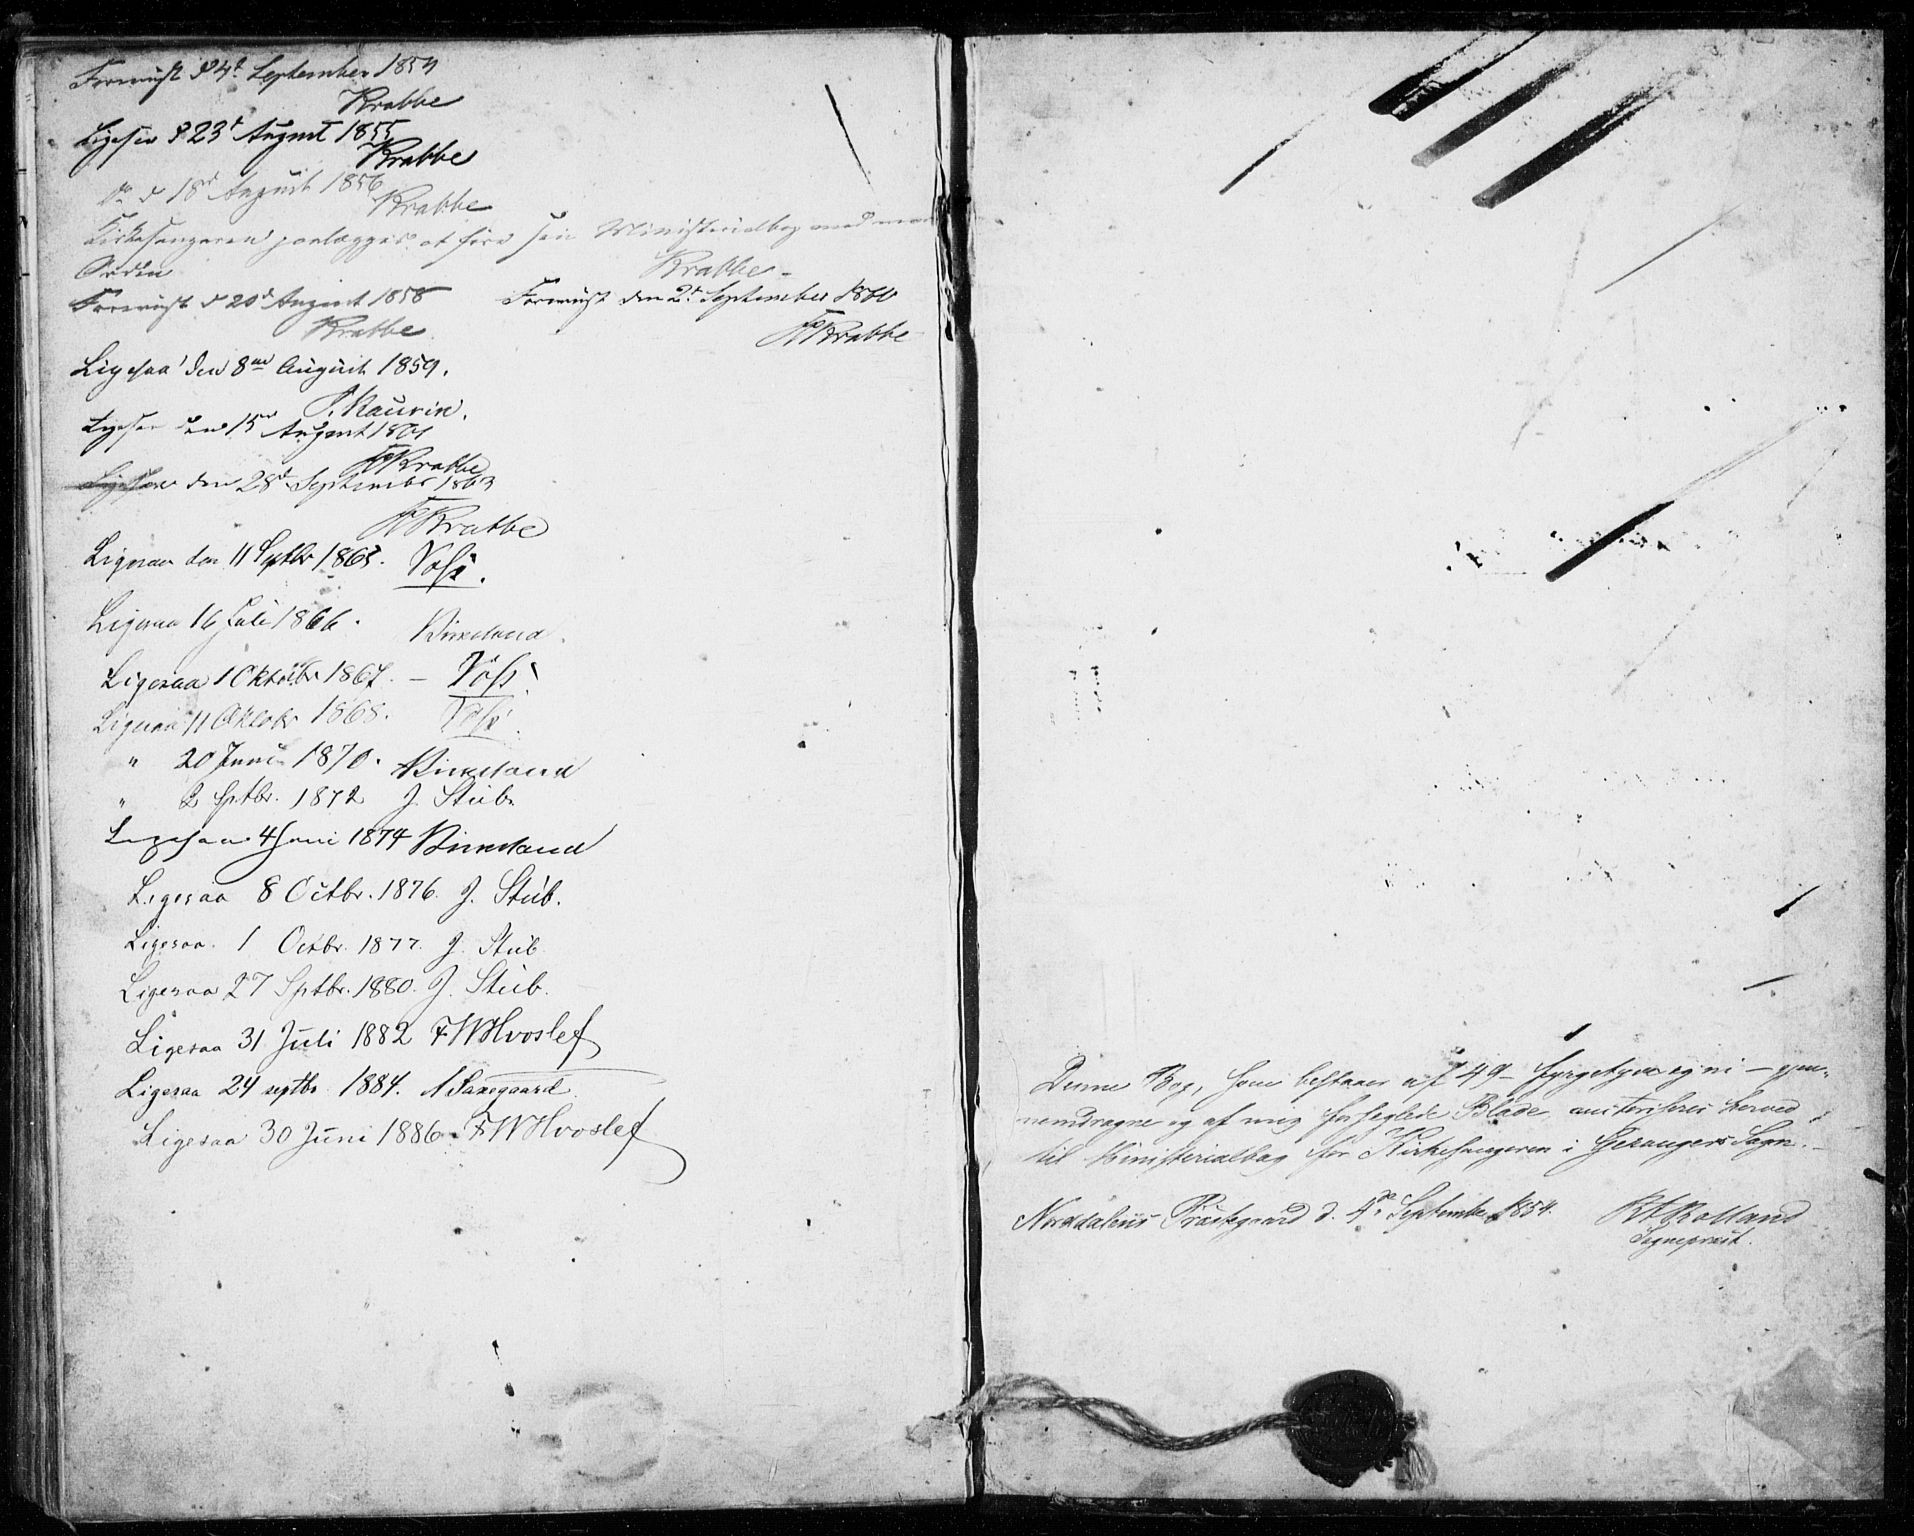 Foreviist d 4de September 1854
Krabbe
Ligesaa d 23d August 1855
Krabbe
do d 18d August 1856
Krabbe
Kirkesangeren paalægges at føre sin Ministerialbog med mere
Orden
Krabbe -
Foreviist d 20d August 1858
Krabbe
Foreviist den 2d September 1860
FKrabbe
Ligesaa den 8de August 1859.
P. Kaurin.
Ligesaa den 15de August 1861
FKrabbe
Ligesaa den 28d September 1863
FKrabbe
Ligesaa den 11 Septbr 1865. Voss.
Ligesaa 16 Juli 1866. Birkeland.
Ligesaa 1 Oktober 1867. - Voss.
Ligesaa 11 Oktober 1868. Voss.
" 20 Juni 1870. Birkeland
" 2 Sptbr. 1872 J. Stub.
Ligesaa 4 Juni 1874 Birkeland
Ligesaa 8 Octbr. 1876. J. Stub.
Ligesaa. 1 Octbr. 1877. J. Stub
Ligesaa 27 Sptbr. 1880. J. Stub.
Ligesaa 31 Juli 1882 FWHvoslef
Ligesaa 24 septbr. 1884. A Saxegaard.
Ligesaa 30 Juni 1886. FWHvoslef
Denne Bog, som bestaaer af 49 - fyrgetyve og ni - gjen-
nemdragne og af mig forseglede Blade, autoriseres herved
til Ministerialbog for Kirkesangeren i Gerangers Sogn. -
Norddalens Præstegaard d. 4de September 1854.
RARolland
Sognepræst.